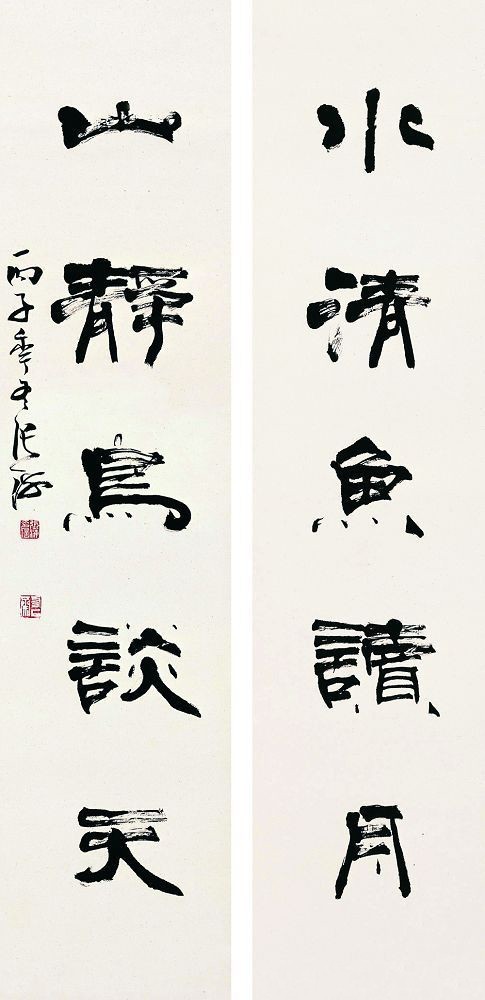 水清魚讀月
山靜鳥談天
丙子年冬張海